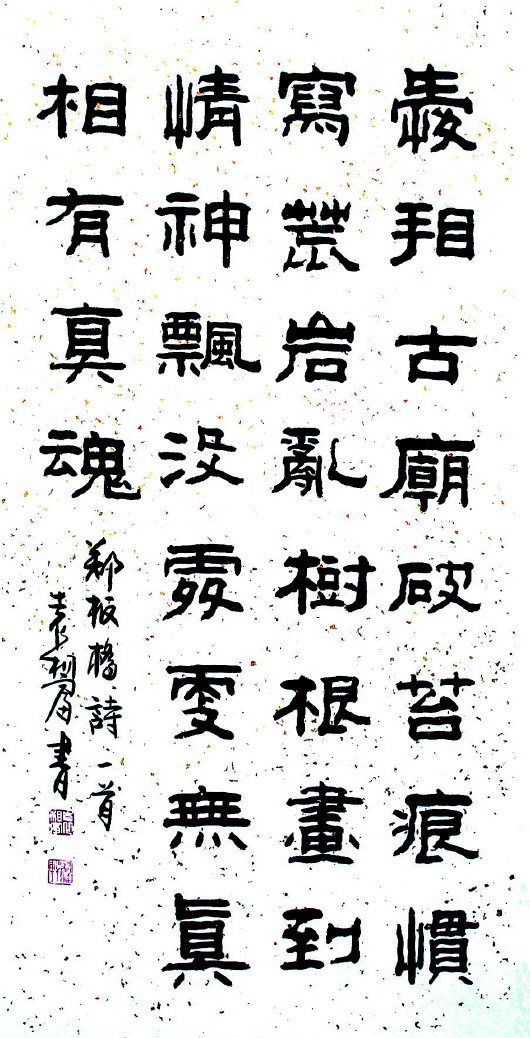 愛看古廟破苔痕慣
寫荒岩亂樹根畫到
情神飄没處更無真
相有真魂
鄭板橋詩一首
書